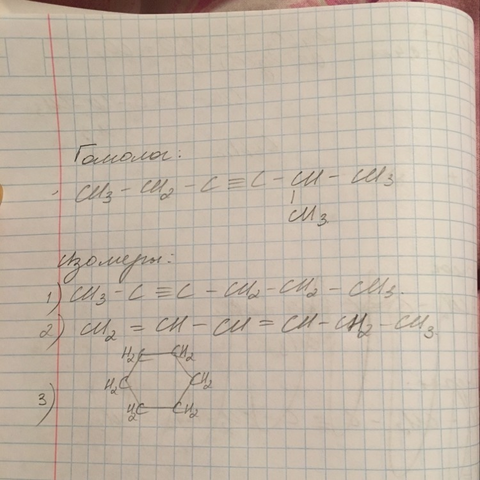 Гомолог:
CH3 – CH2 – C ≡ C – CH – CH3
CH3
Изомеры:
1) CH3 – C ≡ C – CH2 – CH2 – CH3.
2) CH2 = CH – CH = CH – CH2 – CH3
H2C CH2
H2C CH2
3) H2C CH2